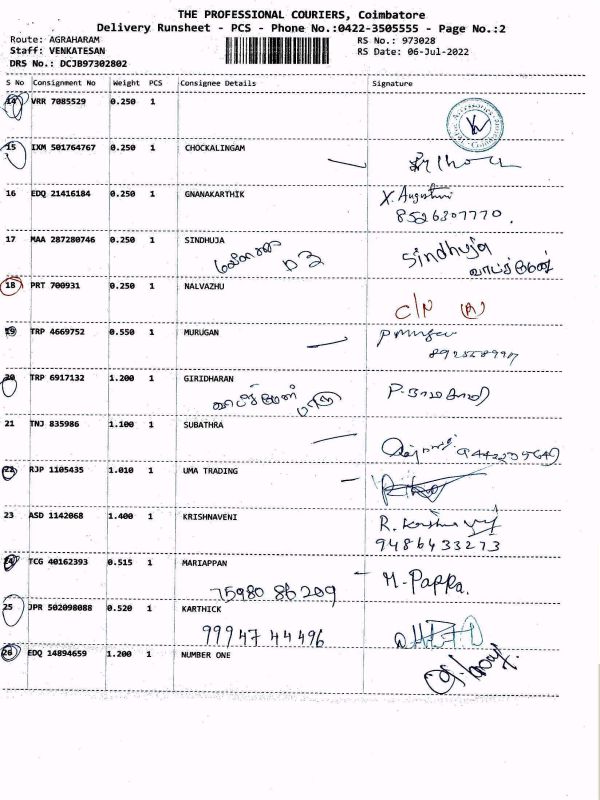 THE PROFESSIONAL COURIERS, Coimbatore
Delivery Runsheet - PCS - Phone No.:0422-3505555 - Page No.:2
Route: AGRAHARAM RS No.: 973028
Staff: VENKATESAN RS Date: 06-Jul-2022
DRS No.: DCJB97302802
S No Consignment No Weight PCS Consignee Details Signature
14 VRR 7085529 0.250 1
15 IXM 501764767 0.250 1 CHOCKALINGAM
16 EDQ 21416184 0.250 1 GNANAKARTHIK X. Augustin
8526307770.
17 MAA 287280746 0.250 1 SINDHUJA Sindhuja
D3
18 PRT 700931 0.250 1 NALVAZHU
C/N
19 TRP 4669752 0.550 1 MURUGAN
20 TRP 6917132 1.200 1 GIRIDHARAN
21 TNJ 835986 1.100 1 SUBATHRA
22 RJP 1105435 1.010 1 UMA TRADING
23 ASD 1142068 1.400 1 KRISHNAVENI
9486433273
24 TCG 40162393 0.515 1 MARIAPPAN M. Pappa.
75980 86209
25 JPR 502098088 0.520 1 KARTHICK
99947 44496
26 EDQ 14894659 1.200 1 NUMBER ONE